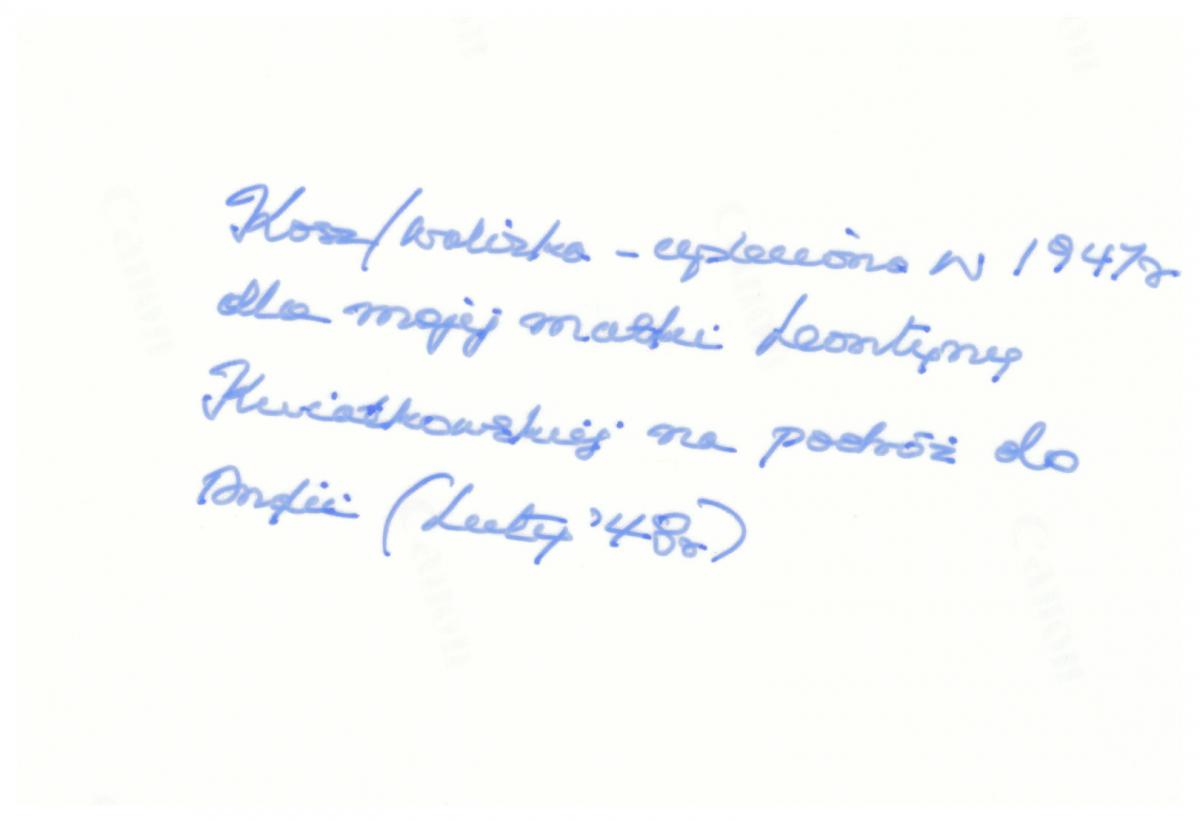 Kosz/walizka – uplecióna w 1947r
dla mojej matki Leontyny
Kwiatkowskiej na podróż do
Anglii (Luty '48r)